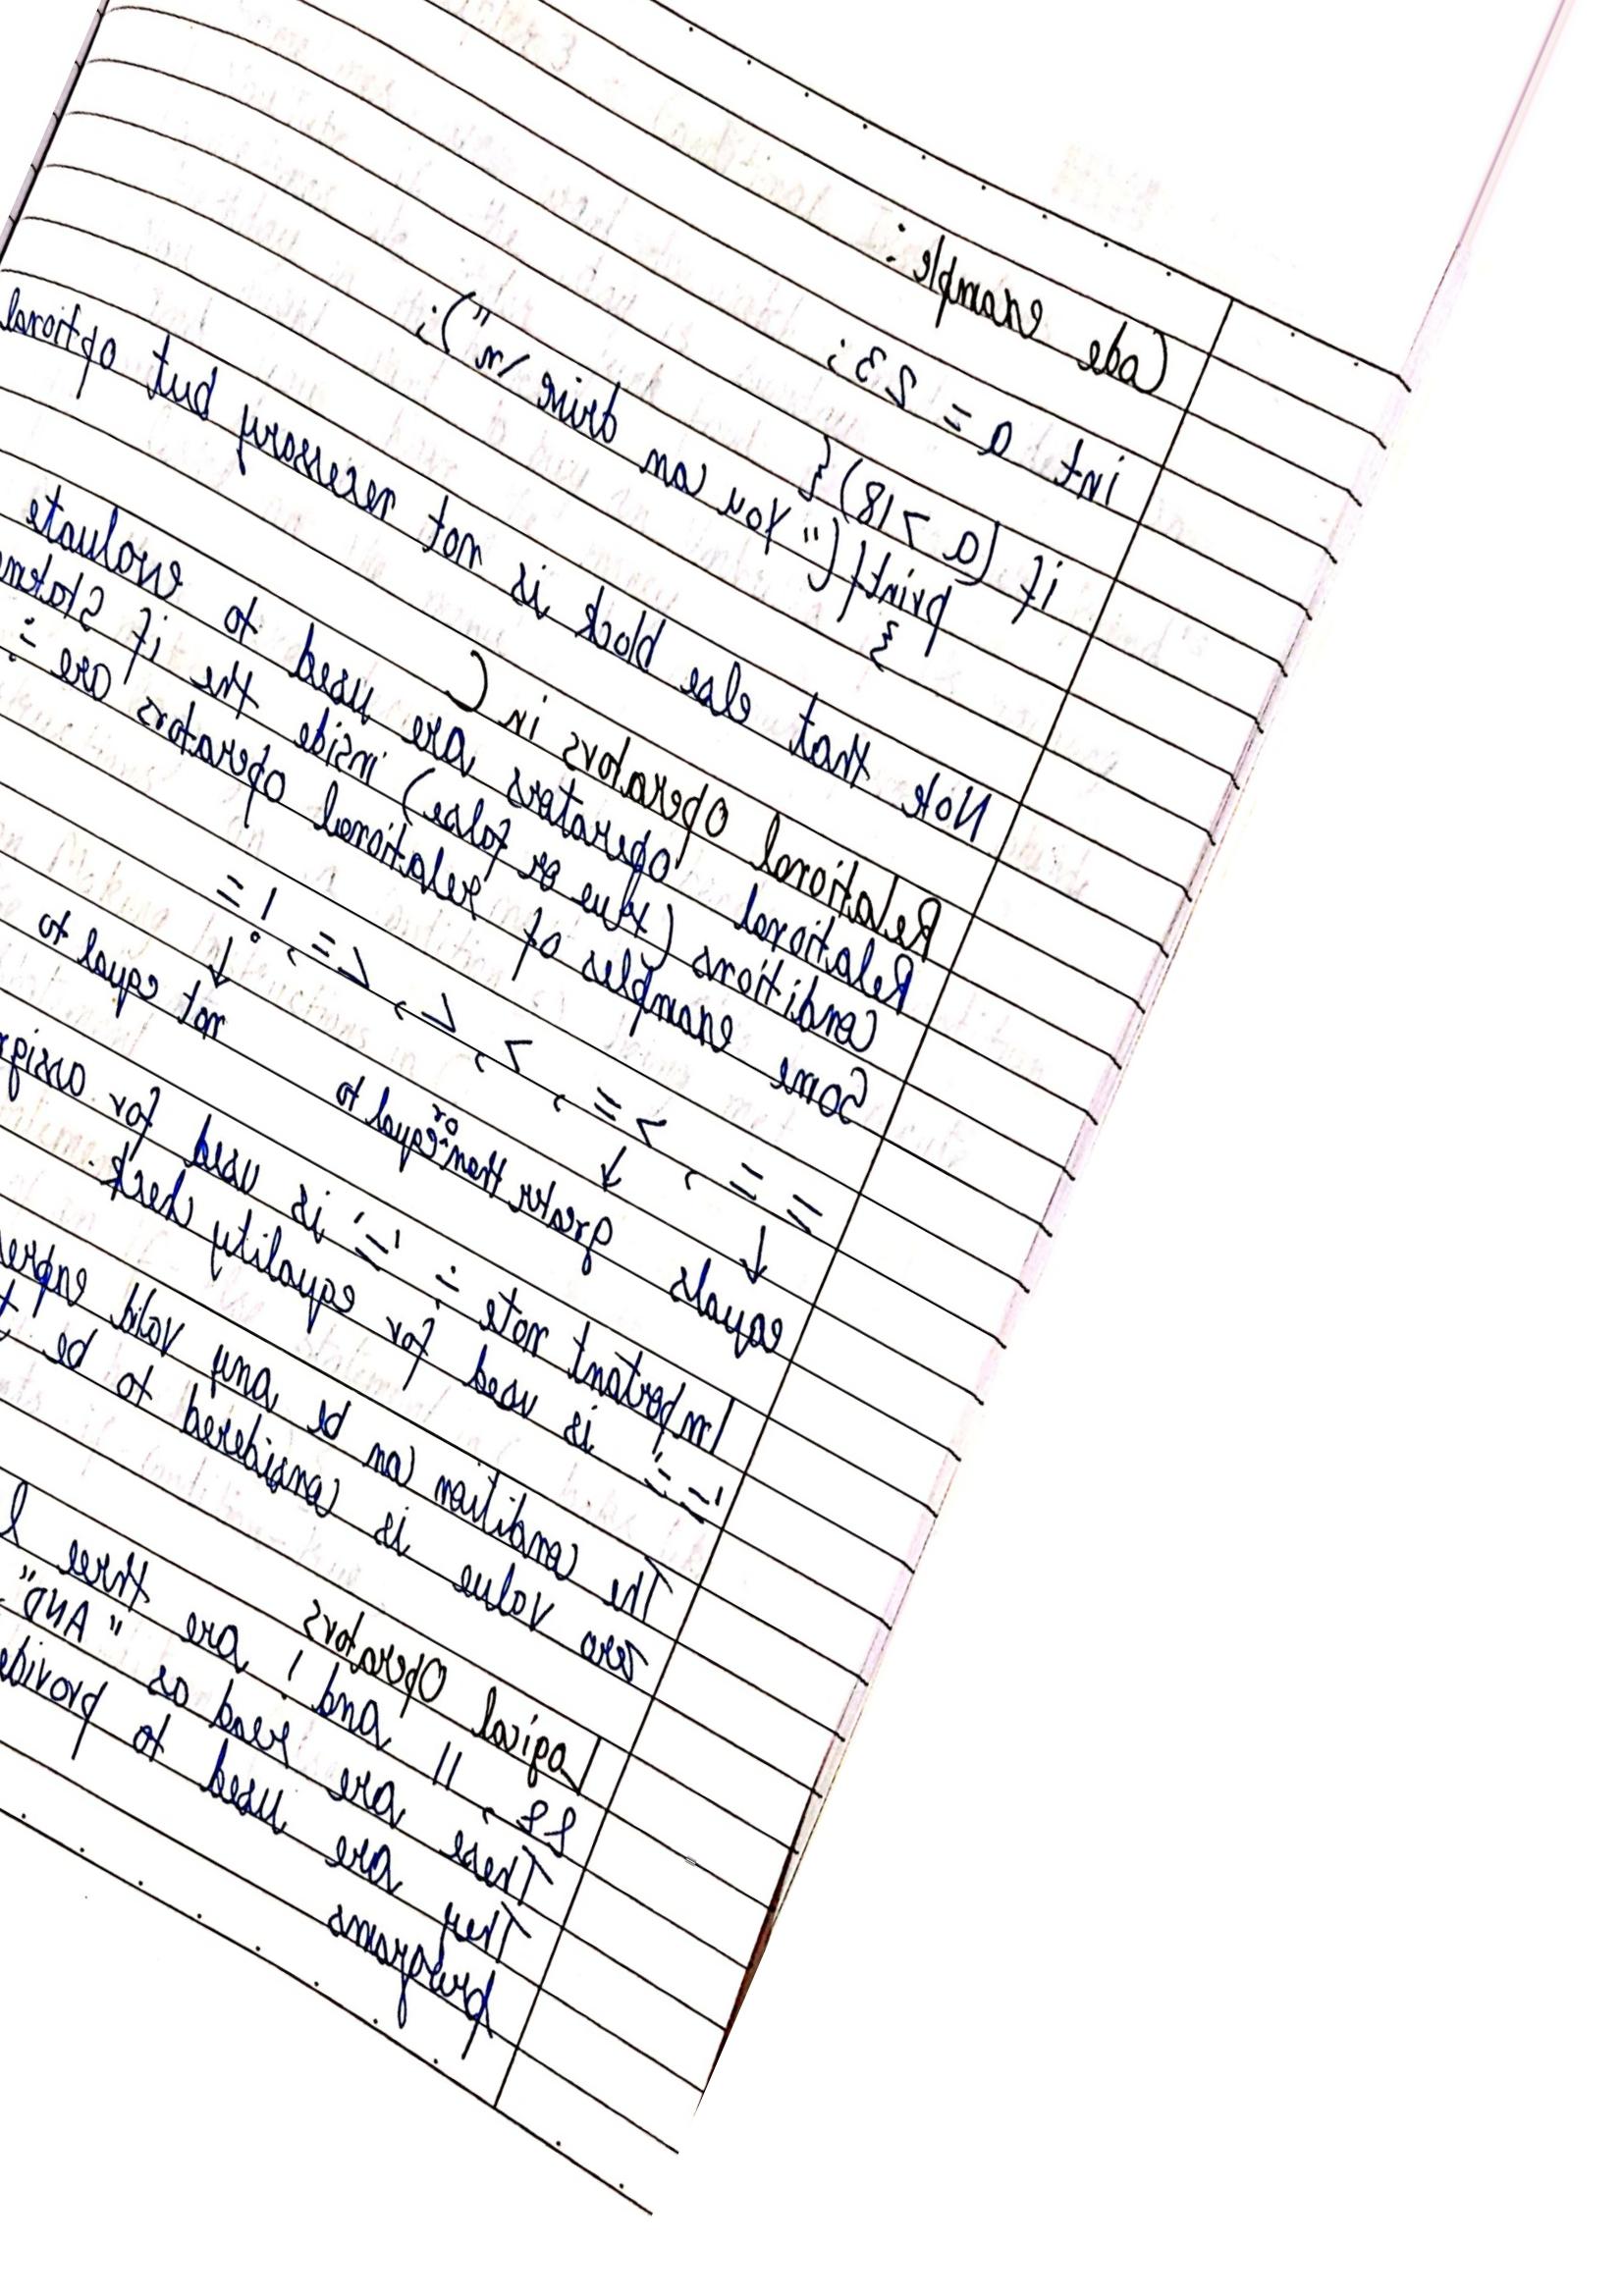 Code example :
int a = 23;
if (a >18) {
printf (" You can drive \n");
}
Note that else block is not necessary but optional
Relational Operators in C
Relational operators are used to evaluate
Conditions (true or false) inside the if
Some examples of relational operators are :-
= = , >= , > , < , <= , !=
equals greater than or equal to not equal to
Important note :- '=' is used for
'==' is used for equality check.
The condition can be any valid
zero value is considered to be
Logical Operators
&& , || and ! are three
These are read as "AND"
They are used to
programs